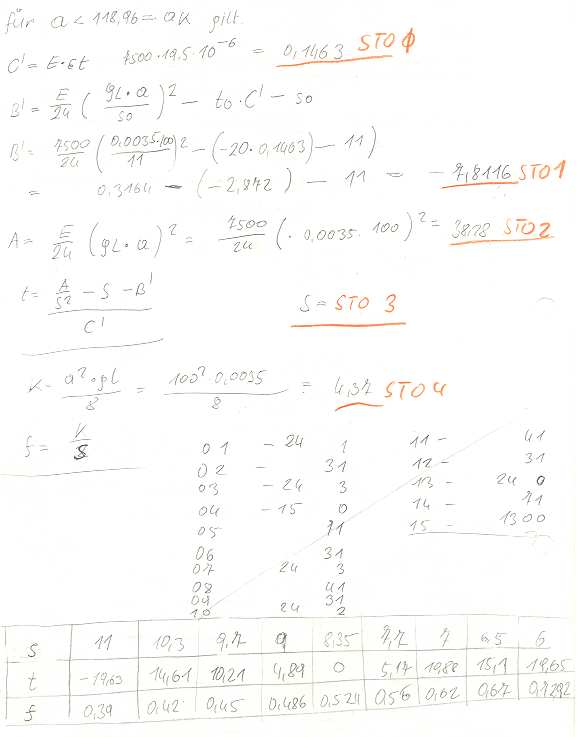 für a < 118,96 = ak gilt.
C' = E·εt 7500·19,5·10⁻⁶ = 0,1463 STO 0
B' = E/24 ( gL·a / so )² − to·C' − so
B' = 7500/24 ( 0,0035·100 / 11 )² − (−20·0,1463) − 11)
= 0,3164 − (−2,872) − 11 = −7,8116 STO 1
A = E/24 (gL·a)² = 7500/24 (· 0,0035· 100)² = 38,28 STO 2
t = ( A/S² − S − B' ) / C' S = STO 3
K = a²·gl / 8 = 100² 0,0035 / 8 = 4,37 STO 4
f = K / S
01 − 24 1 11 − 41
02 − 31 12 − 31
03 − 24 3 13 − 24 0
04 − 15 0 14 − 71
05 71 15 − 1300
06 31
07 24 3
08 41
09 31
10 24 2
S 11 10,3 9,7 9 8,35 7,7 7 6,5 6
t −19,63 14,61 10,21 4,89 0 5,17 19,88 15,1 19,65
f 0,39 0,42 0,45 0,486 0,524 0,56 0,62 0,67 0,7292